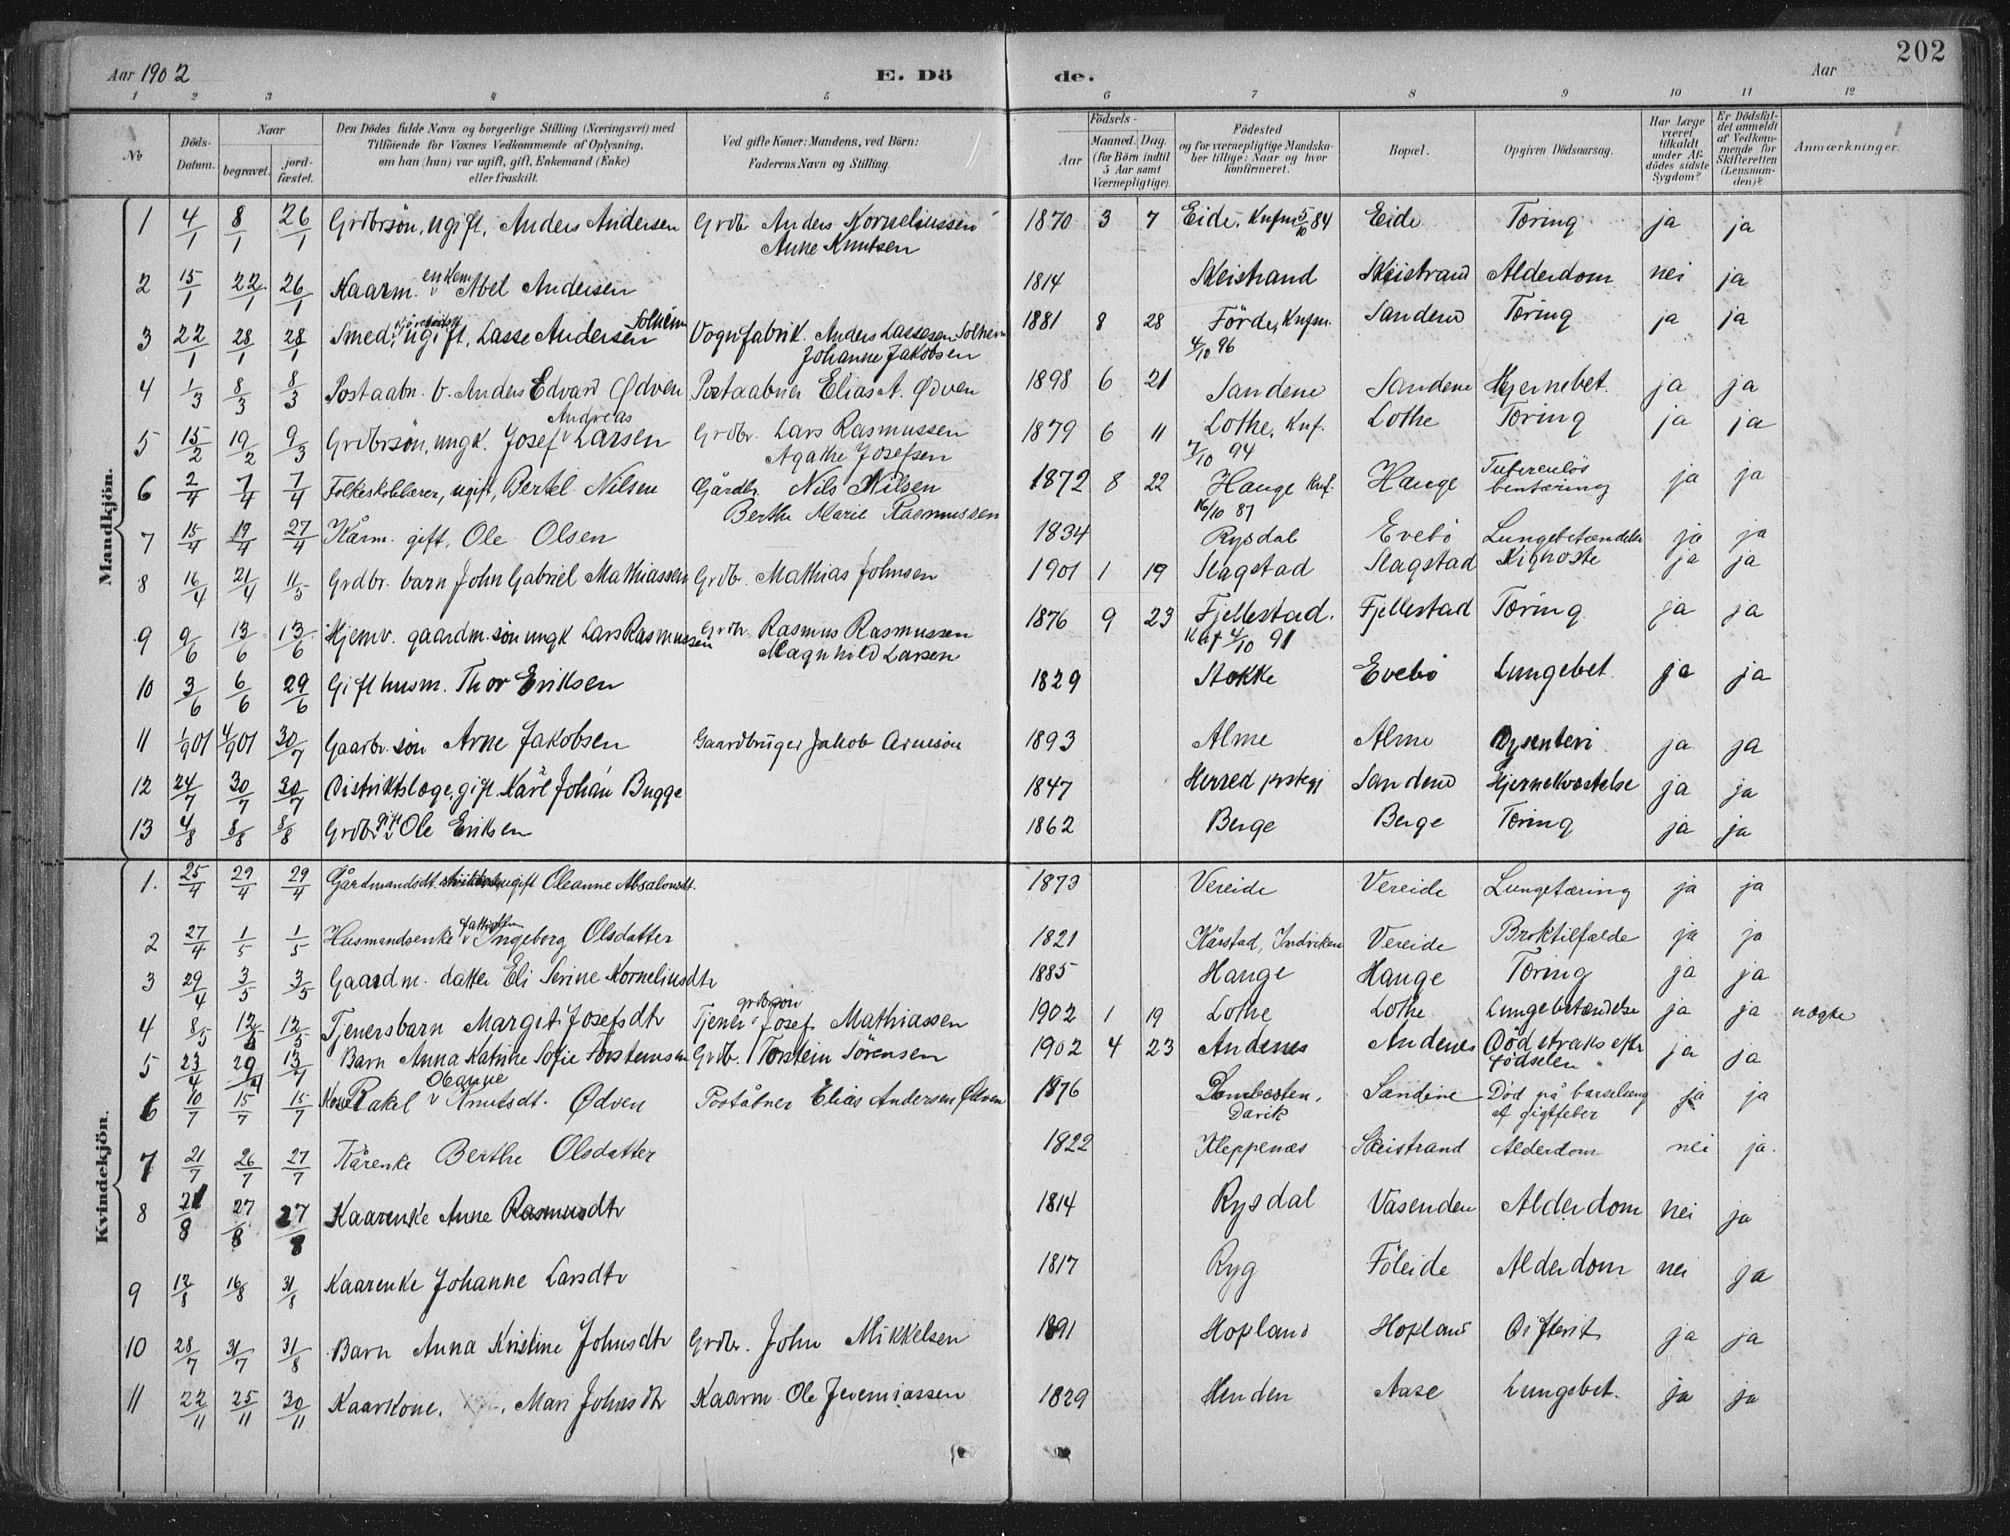 202
Aar 1902 E. Dö de. Aar
1 2 3 4 5 6 7 8 9 10 11 12
No. Döds-Datum. Naar begravet. jordfæstet. Den Dödes fulde Navn og borgerlige Stilling (Næringsvei) med Tilföiende for Voxnes Vedkommende af Oplysning, om han (hun) var ugift, gift, Enkemand (Enke) eller fraskilt. Ved gifte Koner: Mandens, ved Börn: Faderens Navn og Stilling. Födsels- Aar Maaned. Dag. (for Börn indtil 5 Aar samt Værnepligtige). Födested og for værnepligtige Mandskaber tillige: Naar og hvor konfirmeret. Bopæl. Opgiven Dödsaarsag. Har Læge været tilkaldt under Afdödes sidste Sygdom? Er Dödsfaldet anmeldt af Vedkommende for Skifteretten (Lensmanden)? Anmærkninger.
Mandkjön.
1 4/1 8/1 26/1 Grdbrsön, ugift, Anders Andersen Grdbr. Anders Korneliussen Anne Knutsen 1870 3 7 Eide, Knfm 5/10 84 Eide Tæring ja ja
2 15/1 22/1 26/1 Kaarm. enkem Abel Andersen 1814 Skeistrand Skeistrand Alderdom nei ja
3 22/1 28/1 28/1 Smed, ugift, Lasse Andersen Solheim Vognfabrik. Anders Lassesen Solheim Johanne Jakobsen 1881 8 28 Förde, Knfm. 4/10 96 Sandene Tæring ja ja
4 1/3 8/3 8/3 Postaabn. b. Anders Edvard Ødven Postaabner Elias A. Ødven 1898 6 21 Sandene Sandene Hjernebet. ja ja
5 15/2 19/2 9/3 Grdbrsön, ungk. Josef Andreas Larsen Grdbr. Lars Rasmussen Agathe Josefsen 1879 6 11 Lothe, Knf. 7/10 94 Lothe Tæring ja ja
6 2/4 7/4 7/4 Folkeskolelærer, ugift, Bertel Nilsen Gårdbr. Nils Nilsen Berthe Marie Rasmussen 1872 8 22 Hauge Knf. 16/10 87 Hauge Tuberculös bentæring ja ja
7 15/4 19/4 27/4 Kårm. gift, Ole Olsen 1834 Rysdal Evebö Lungebetændelse ja ja
8 16/4 21/4 11/5 Grdbr. barn John Gabriel Mathiassen Grdbr. Mathias Johnsen 1901 1 19 Slagstad Slagstad Kighoste ja ja
9 9/6 13/6 13/6 Hjemv. gaardm. sön ungk Lars Rasmussen Grdbr. Rasmus Rasmussen Magnhild Larsen 1876 9 23 Fjellestad. Knf 4/10 91 Fjellestad Tæring ja ja
10 3/6 6/6 29/6 Gift husm. Thor Eriksen 1829 Stokke Evebö Lungebet. ja ja
11 1/9 01 4/9 01 30/7 Gaarbr. sön Arne Jakobsen Gaardbruger Jakob Arneson 1893 Alme Alme Dysenteri ja ja
12 24/7 30/7 30/7 Distriktslæge, gift. Karl Johan Bugge 1847 Herred prstegj Sandene Hjernekvæstelse ja ja
13 4/8 8/8 8/8 Grdbr. gift Ole Eriksen 1862 Berge Berge Tæring ja ja
Kvindekjön.
1. 25/4 29/4 29/4 Gårdmandsdt. ugift Oleanne Absalonsdt. 1873 Vereide Vereide Lungetæring ja ja
2 27/4 1/5 1/5 Husmandsenke Ingeborg Olsdatter 1821 Kårstad, Indviken Vereide Broktilfælde ja ja
3 29/4 3/5 3/5 Gaardm. datter Eli Serine Korneliusdtr 1885 Hauge Hauge Tæring ja ja
4 8/5 12/5 12/5 Tjenersbarn Margit Josefsdtr Tjener grdbrsön Josef Mathiassen 1902 1 19 Lothe Lothe Lungebetændelse ja ja uægte
5 23/4 29/4 13/7 Barn Anna Katrine Sofie Torsteinsen Grdb. Torstein Sörensen 1902 4 23 Andenes Andenes Död straks efter födselen ja ja
6 10/7 15/7 15/7 Kone Rakel Oleanne Knutsdt. Ødven Postaåbner Elias Andersen Ødven 1876 Dombesten, Davik Sandene Död på barselseng af gigtfeber ja ja
7 21/7 26/7 27/7 Kårenke Berthe Olsdatter 1822 Kleppenæs Skeistrand Alderdom nei ja.
8 21/8 27/8 27/8 Kaarenke Anne Rasmusdtr 1814 Rysdal Vasenden Alderdom nei ja
9 12/8 16/8 31/8 Kaarenke Johanne Larsdtr 1817 Ryg Föleide Alderdom nei ja
10 28/7 31/7 31/8 Barn Anna Kristine Johnsdtr Grdbr. John Mikkelsen 1891 Hopland Hopland Difterit ja ja
11 22/11 25/11 30/11 Kaarkone, Mari Johnsdtr Kaarm. Ole Jeremiassen 1829 Henden Aase Lungebet. ja ja